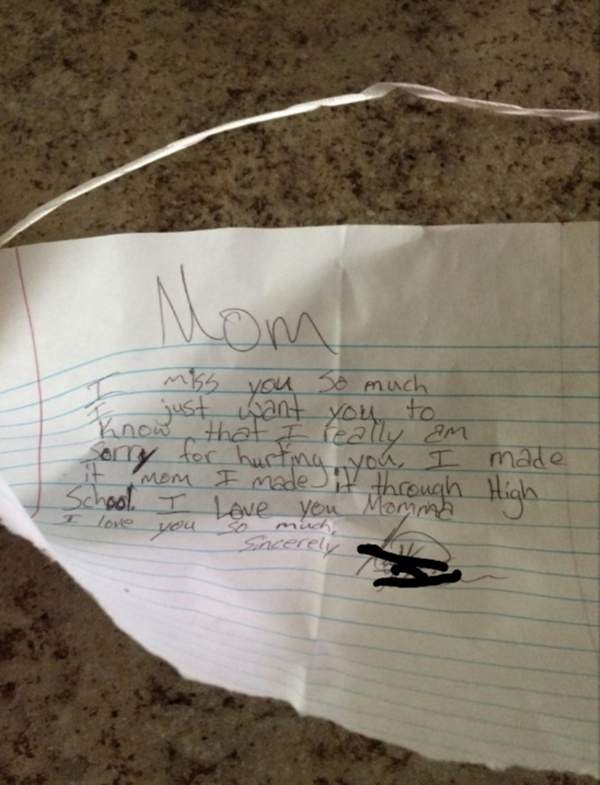 Mom
I miss you so much
I just want you to
Know that I really am
Sorry for hurting you. I made
it mom I made it through High
School. I Love you Momma
I love you so much,
Sincerely